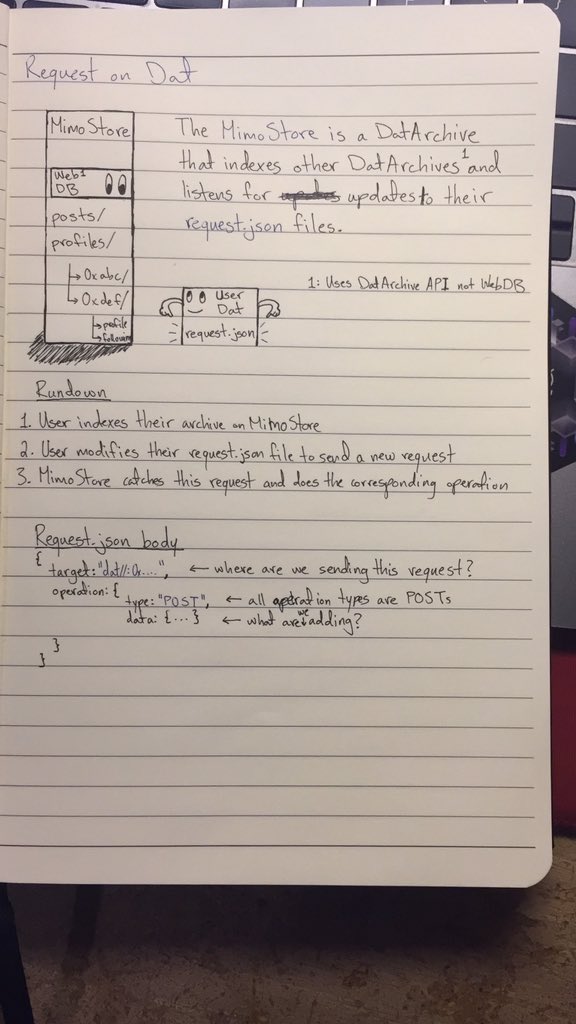 Request on Dat
MimoStore
Web¹
DB
posts/
profiles/
↳ 0xabc/
↳ 0xdef/
↳ profile
↳ followers
The MimoStore is a DatArchive
that indexes other DatArchives¹ and
listens for updates to their
request.json files.
1: Uses DatArchive API not WebDB
User
Dat
request.json
Rundown
1. User indexes their archive on MimoStore
2. User modifies their request.json file to send a new request
3. MimoStore catches this request and does the corresponding operation
Request.json body
{
target: "dat//:0x....", ← where are we sending this request?
operation: {
type: "POST", ← all operation types are POSTs
data: {...} ← what are we adding?
}
}